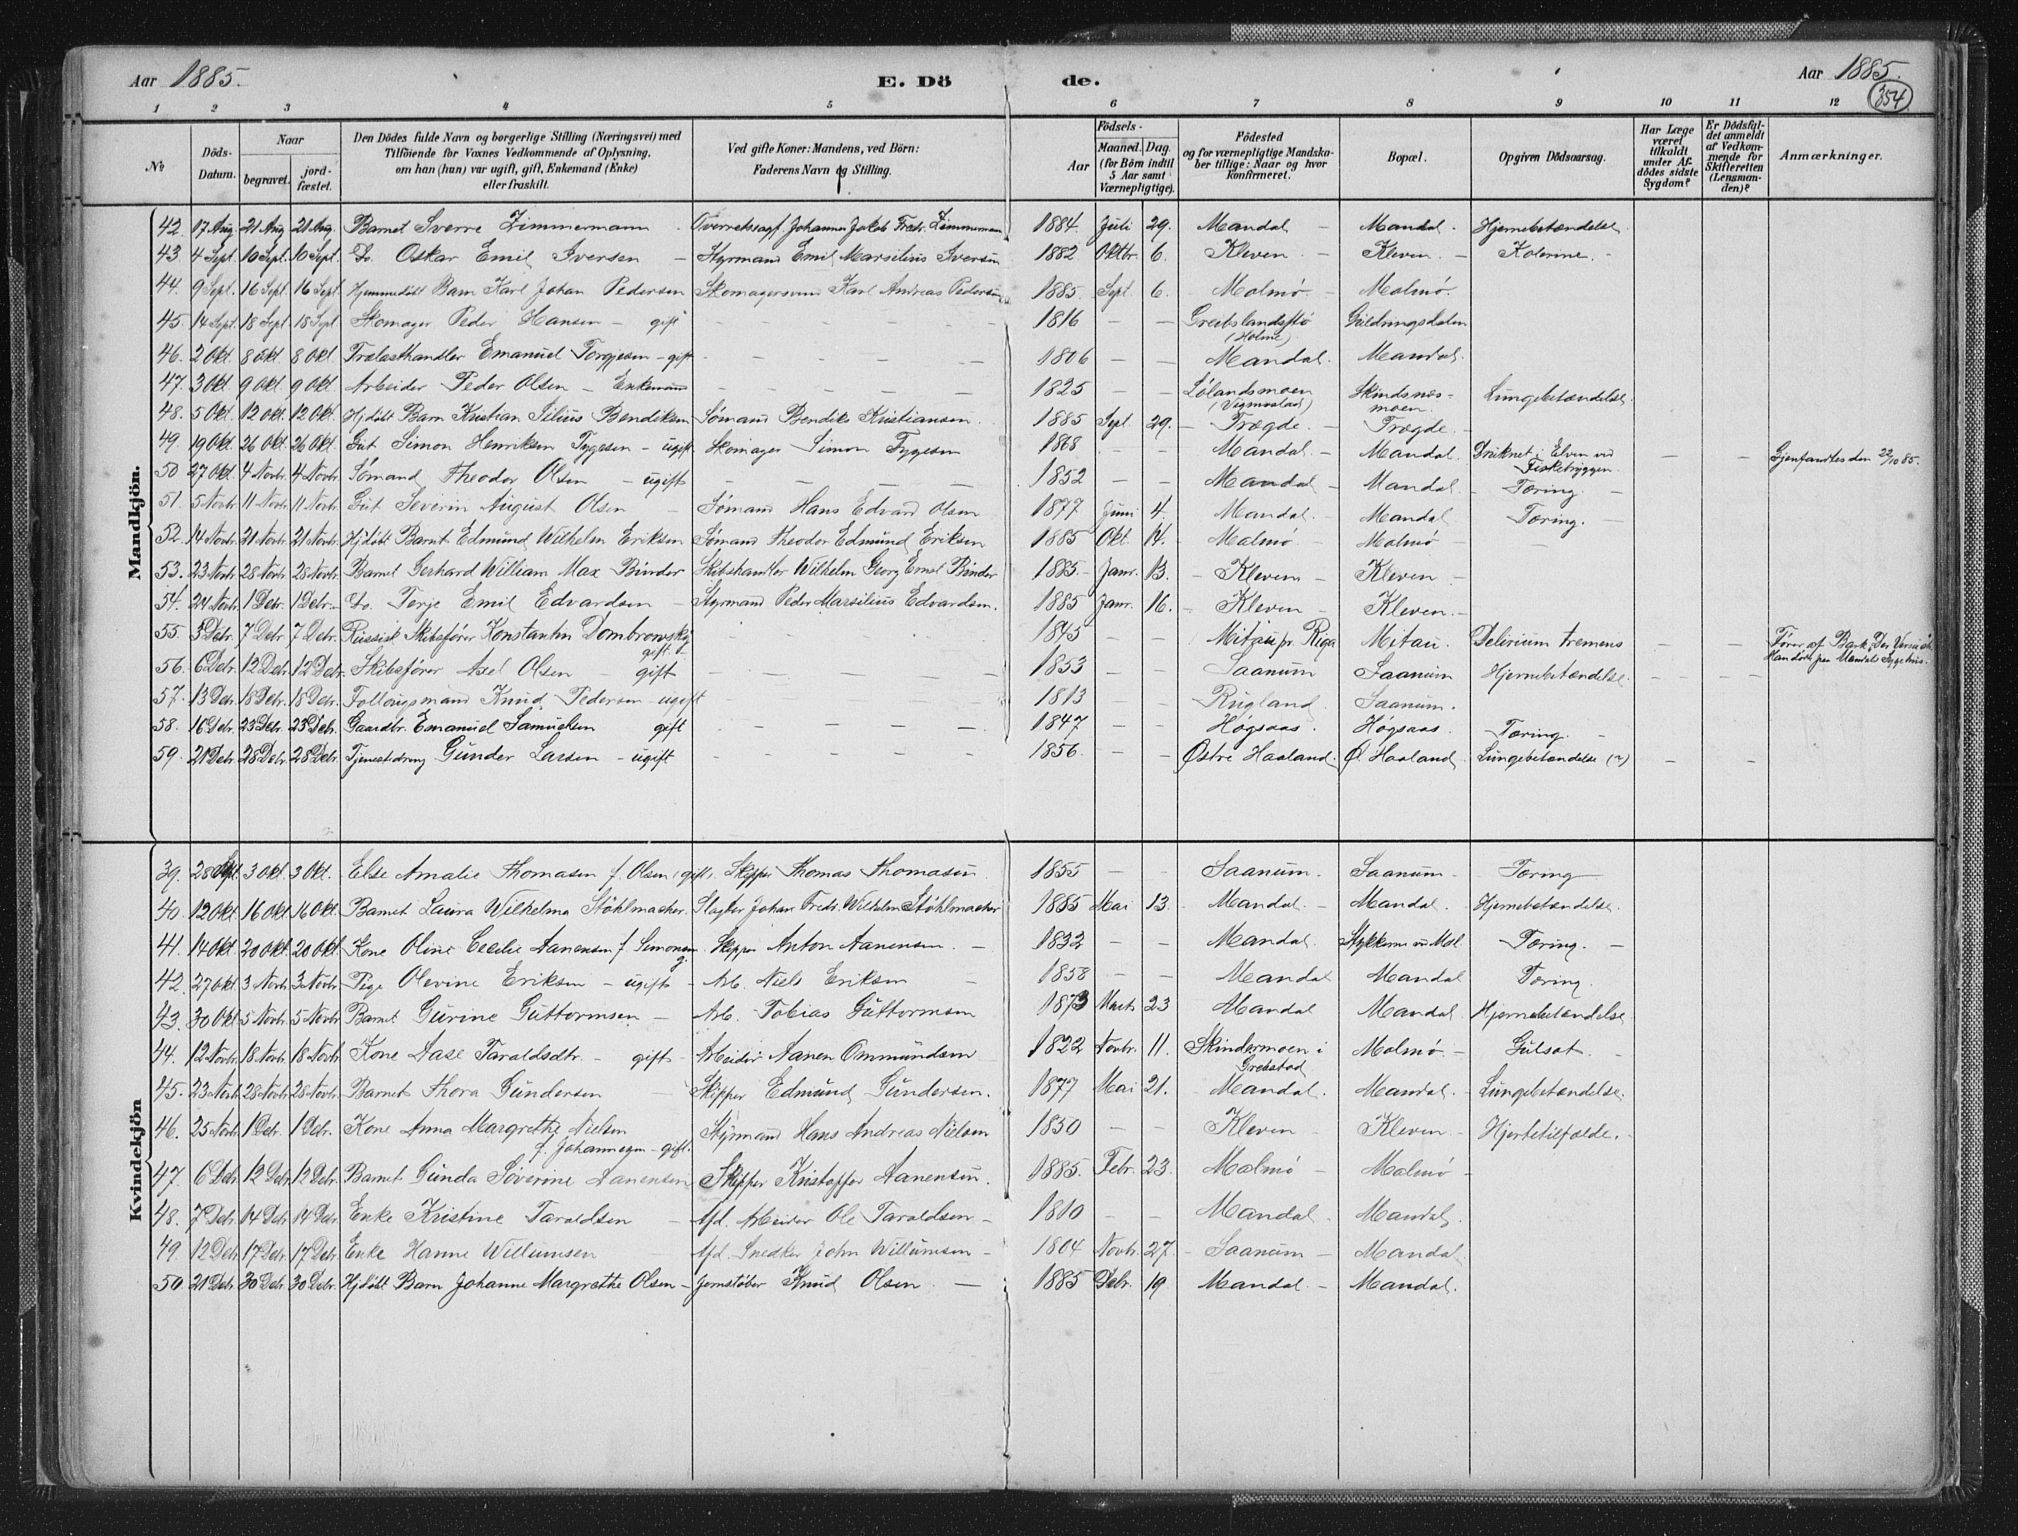 Aar 1885. E. Dö de. Aar 1885.
354
1 2 3 4 5 6 7 8 9 10 11 12
№ Döds-Datum. Naar begravet. jord-fæstet. Den Dödes fulde Navn og borgerlige Stilling (Næringsvei) med Tilföiende for Voxnes Vedkommende af Oplysning, om han (hun) var ugift, gift, Enkemand (Enke) eller fraskilt. Ved gifte Koner: Mandens, ved Börn: Faderens Navn og Stilling. Födsels- Aar Maaned. Dag. (for Börn indtil 5 Aar samt Værnepligtige). Födested og for værnepligtige Mandskaber tillige: Naar og hvor konfirmeret. Bopæl. Opgiven Dödsaarsag. Har Læge været tilkaldt under Afdödes sidste Sygdom? Er Dödsfaldet anmeldt af Vedkommende for Skifteretten (Lensmanden)? Anmærkninger.
Mandkjön.
42. 17 Aug. 21 Aug 21 Aug. Barnet Sverre Zimmermann Johannes Jakob Fredr. Zimmermann 1884. Juli 29. Mandal – Mandal. Hjernebetændelse
43. 4 Sept. 10 Sept. 10 Sept. Do. Oskar Emil Iversen – Styrmand Emil Marsilius Iversen 1882 Oktbr. 6. Kleven. – Kleven. – Kolerine. –
44. 9 Sept. 16 Sept. 16 Sept. Hjemmedöbt Barn Karl Johan Pedersen Skomagersvend Karl Andreas Pedersen 1885. Sept. 6. Malmø. – Malmø.
45. 14 Sept. 18 Sept. 18 Sept. Skomager Peder Hansen – gift – – – – 1816 – – Greibslandsstø (Holme) Guldringsdalen
46. 2 Okt. 8 Okt. 8 Okt. Trælasthandler Emanuel Torgjesen – gift – – – – 1806 – – Mandal. Mandal.
47. 3 Okt. 9 Okt. 9 Okt. Arbeider Peder Olsen – Enkemand – – – – 1825 – – Lølandsmoen (Vigmostad) Skindsnes-moen. Lungebetændelse
48. 5 Okt. 12 Okt. 12 Okt. Hjdöbt Barn Kristian Silius Bendiksen Sømand Bendiks Kristiansen. 1885 Sept. 29. – Trægde. – Trægde.
49. 19 Okt. 26 Okt. 26 Okt. Gut Simon Henriksen Tygesen – ugift Skomager Simon Tygesen 1868 – – Mandal. – Mandal. Druknet i Elven ved Fiskebryggen. – – Gjenfandtes den 22/10 85.
50 27 Okt. 4 Novbr. 4 Novbr. Sømand Theodor Olsen – ugift – – – – 1852 – – Mandal – Mandal. – Tæring. –
51. 5 Novbr. 11 Novbr. 11 Novbr. Gut Severin August Olsen – Sømand Hans Edvard Olsen 1877 Juni 4. – Mandal. – Mandal. Tæring. –
52. 14 Novbr. 21 Novbr. 21 Novbr. Hjdöbt Barnet Edmund Wilhelm Eriksen Sømand Theodor Edmund Eriksen 1885 Okt. 14. – Malmø – Malmø – –
53. 23 Novbr. 28 Novbr. 28 Novbr. Barnet Gerhard William Max Binder Skibshandler Wilhelm Georg Ernst Binder 1885. – Janr. 13. – Kleven – Kleven –
54. 24 Novbr. 1 Debr. 1 Debr. Do. Terje Emil Edvardsen – Styrmand Peder Marsilius Edvardsen. 1885 Janr. 16. – Kleven – Kleven. –
55. 3 Debr. 7 Debr. 7 Debr. Russisk Skibsfører Konstantin Dombrowsky gift – – – – 1845 – – Mitau pr. Riga Mitau. Delirium tremens – – Fører af Bark. Han døde paa Mandals Sygehus.
56. 6 Debr. 12 Debr. 12 Debr. Skibsfører Axel Olsen – gift – – – – 1853 – – Saanum Saanum Hjernebetændelse. – – –
57. 13 Debr. 18 Debr. 18 Debr. Follougsmand Knud Pedersen – ugift 1813 – Rugland. Saanum.
58. 16 Debr. 23 Debr. 23 Debr. Gaardbr. Emanuel Samuelsen gift – – – – 1847 – – Høgsaas. Høgsaas. – Tæring. –
59. 21 Debr. 28 Debr. 28 Debr. Tjenestdreng Gunder Larsen – ugift – – – – 1856. – – Østre Haaland. Ø. Haaland. Lungebetændelse (?) – –
Kvindekjön
39. 28 Sept. 3 Okt. 3 Okt. Else Amalie Thomasen f. Olsen, gift. Skipper Thomas Thomasen. 1855 – – Saanum. Saanum – Tæring –
40. 12 Okt. 16 Okt. 16 Okt. Barnet Laura Wilhelma Støhlmacher. Slagter Johan Fredr. Wilhelm Støhlmacher 1885 Mai 13. – Mandal. – Mandal. Hjernebetændelse.
41. 14 Okt. 20 Okt. 20 Okt. Kone Oline Cecilie Aanensen f. Simonsen g. Skipper Anton Aanensen. – 1832 – – Mandal. Mdl – Tæring. –
42. 27 Okt. 3 Novbr. 3 Novbr. Pige Olevine Eriksen – ugift – Arb. Niels Eriksen – 1858 – – Mandal Mandal Tæring.
43. 30 Okt. 5 Novbr. 5 Novbr. Barnet Gurine Guttormsen – Arb. Tobias Guttormsen 1873 Marts 23 Mandal Mandal. Hjernebetændelse
44. 12 Novbr. 18 Novbr. 18 Novbr. Kone Aase Taraldsdtr. – gift – Arbeider Aanen Ommundsen 1822 Novbr. 11. Skindermoen i Grebstad Malmø – Gulsot. –
45. 23 Novbr. 28 Novbr. 28 Novbr. Barnet Thora Gundersen – Skipper Edmund Gundersen. 1877 Mai 21. – Mandal. Mandal. – Lungebetændelse.
46. 25 Novbr. 1 Debr. 1 Debr. Kone Anna Margrethe Nielsen f. Johannesen – gift. Styrmand Hans Andreas Nielsen 1850 – – Kleven – Kleven. – Hjertetilfælde. –
47. 6 Debr. 12 Debr. 12 Debr. Barnet Gunda Søverine Aanensen Skipper Kristoffer Aanensen. 1885. Febr. 23. – Malmø – Malmø –
48. 7 Debr. 14 Debr. 14 Debr. Enke Kristine Taraldsen – Afd. Arbeider Ole Taraldsen – 1810 – – Mandal. – Mandal.
49. 12 Debr. 17 Debr. 17 Debr. Enke Hanne Willumsen Afd. Snedker John Willumsen – 1804 Novbr. 27. – Saanum – Mandal
50. 21 Debr. 30 Debr. 30 Debr. Hjdöbt Barn Johanne Margrethe Olsen – Jernstøber Knud Olsen. – 1885 Debr. 19. – Mandal. – Mandal.